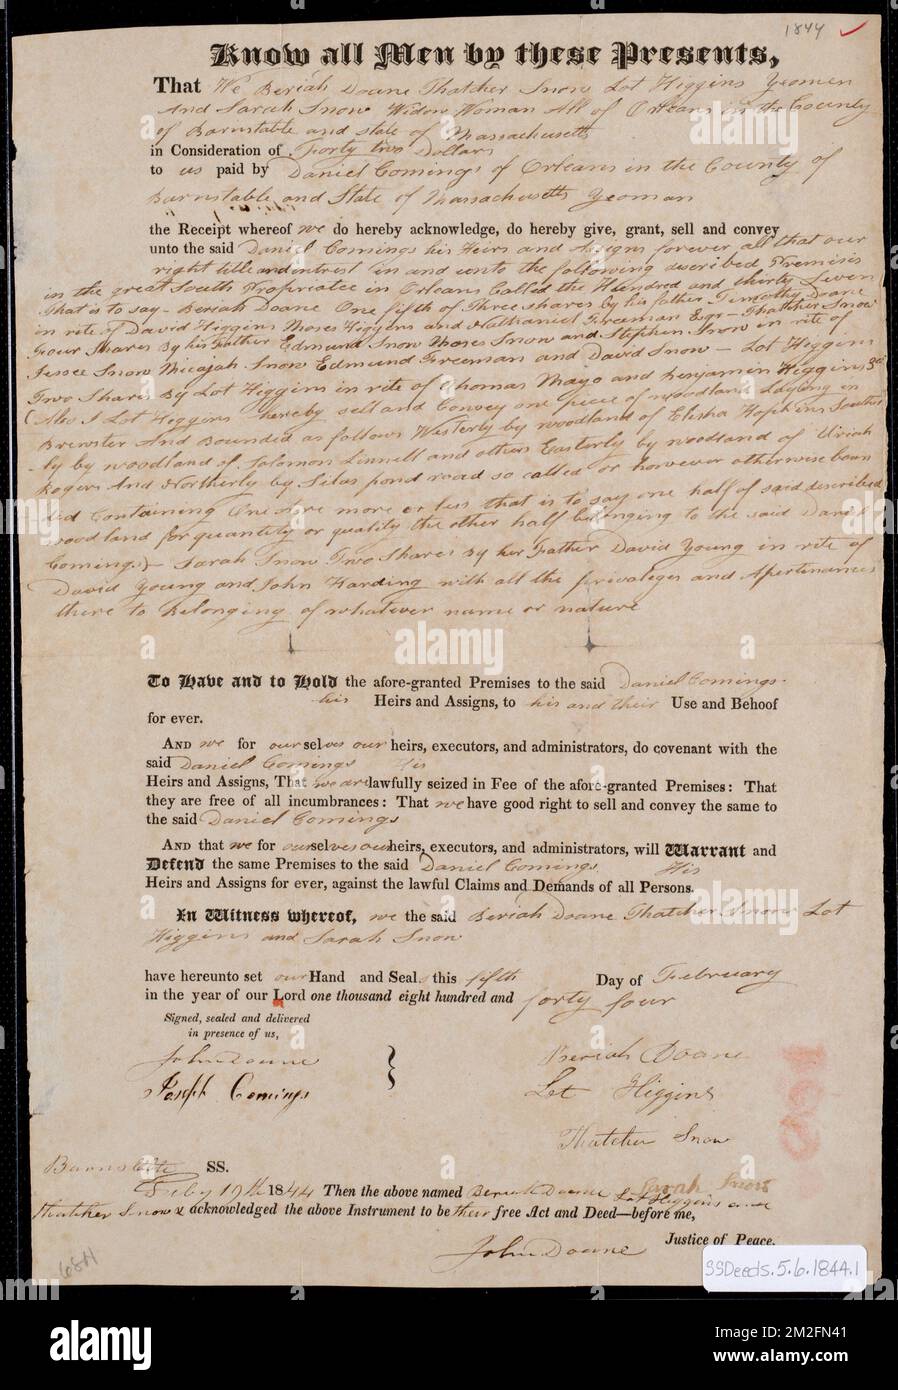 1844
Know all Men by these Presents,
That We Beriah Doane Thatcher Snow Lot Higgins Yeomen
And Sarah Snow Widow Woman All of Orleans in the County
of Barnstable and state of Massachusetts
in Consideration of Forty two Dollars
to us paid by Daniel Comings of Orleans in the County of
Barnstable and State of Massachusetts Yeoman
the Receipt whereof we do hereby acknowledge, do hereby give, grant, sell and convey
unto the said Daniel Comings his Heirs and Asigns forever all that our
right title and intrest in and unto the following described Premises
in the great South Propriatee in Orleans Called the Hundred and thirty Seven
That is to say - Beriah Doane One fifth of Three shares by his father Timothy Doane
in rite of David Higgins Moses Higgins and Nathaniel Freeman Esqr - Thatcher Snow
Four Shares By his Father Edmund Snow Moses Snow and Stephen Snow in rite of
Jessee Snow Micajah Snow Edmund Freeman and David Snow - Lot Higgins
Two Shares By Lot Higgins in rite of Thomas Mayo and Benjamin Higgins 3rd
(Also I Lot Higgins hereby sell and Convey one piece of woodland Laying in
Brewster And Bounded as follows Westerly by woodland of Elisha Hopkins Souther
ly by woodland of Solomon Linnell and others Easterly by woodland of Uriah
Rogers And Northerly by Silas pond road so called or however otherwise boun
ded Containing One Acre more or less that is to say one half of said described
woodland for quantity or quality the other half belonging to the said Daniel
Comings) - Sarah Snow Two Shares By her Father David Young in rite of
David Young and John Harding with all the privaleges and Apertinances
there to belonging of whatever name or nature
To Have and to Hold the afore-granted Premises to the said Daniel Comings
his Heirs and Assigns, to his and their Use and Behoof
for ever.
And we for ourselves our heirs, executors, and administrators, do covenant with the
said Daniel Comings His
Heirs and Assigns, That we are lawfully seized in Fee of the afore-granted Premises: That
they are free of all incumbrances: That we have good right to sell and convey the same to
the said Daniel Comings
And that we for ourselves our heirs, executors, and administrators, will Warrant and
Defend the same Premises to the said Daniel Comings His
Heirs and Assigns for ever, against the lawful Claims and Demands of all Persons.
In Witness whereof, we the said Beriah Doane Thatcher Snow Lot
Higgins and Sarah Snow
have hereunto set our Hand and Seals this fifth Day of February
in the year of our Lord one thousand eight hundred and forty four
Signed, sealed and delivered
in presence of us,
John Doane
Joseph Comings
Beriah Doane
Lot Higgins
Thatcher Snow
Sarah Snow
Barnstable SS.
Feby 19th 1844 Then the above named Beriah Doane Lot Higgins and
Thatcher Snow & acknowledged the above Instrument to be their free Act and Deed—before me,
John Doane Justice of Peace.
SSDeeds.5.6.1844.1
alamy
Image ID: 2M2FN41
www.alamy.com